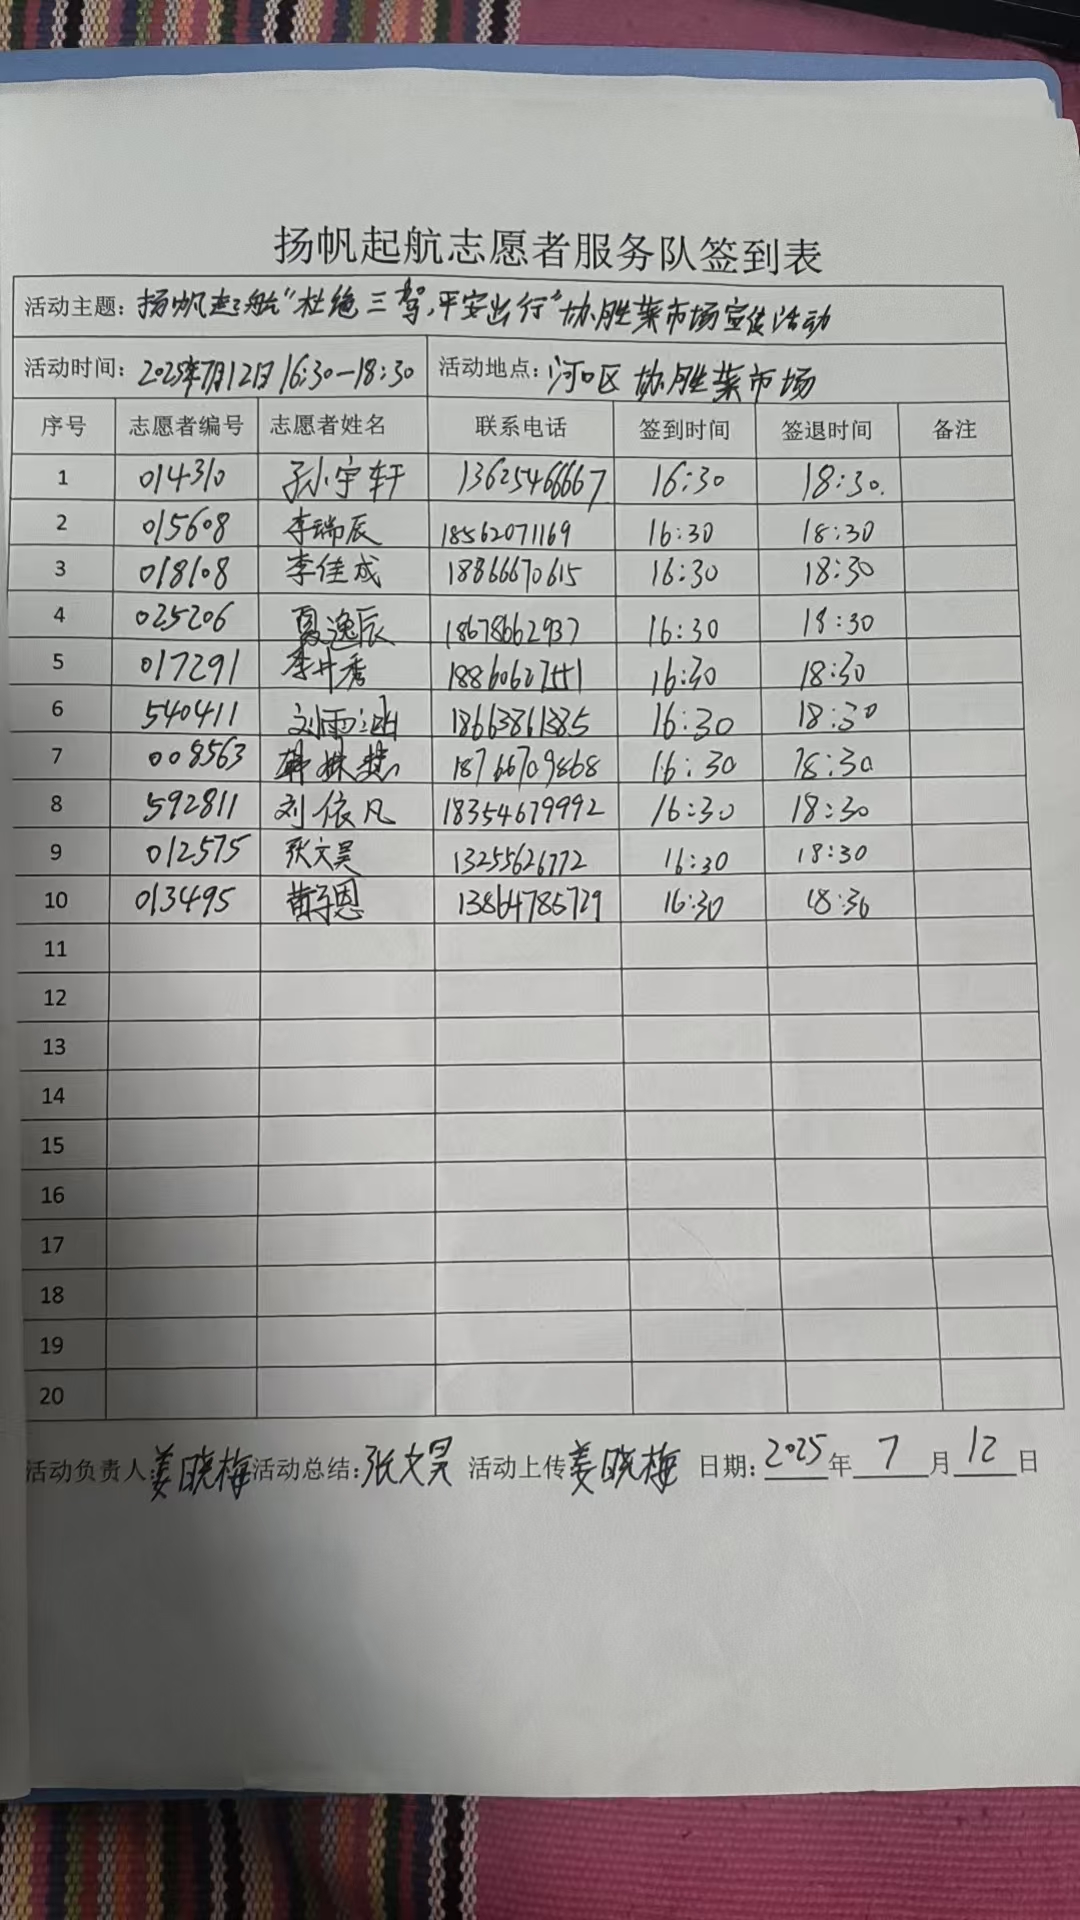 扬帆起航志愿者服务队签到表
活动主题：扬帆起航“杜绝三驾，平安出行”协胜菜市场宣传活动
活动时间：2025年7月12日 16:30—18:30 活动地点：河口区 协胜菜市场
序号 志愿者编号 志愿者姓名 联系电话 签到时间 签退时间 备注
1 014310 孙宇轩 13625466667 16:30 18:30.
2 015608 李瑞辰 18562071169 16:30 18:30
3 018108 李佳成 18866670615 16:30 18:30
4 025206 夏逸辰 18678662937 16:30 18:30
5 017291 李井秀 16:30 18:30
6 540411 刘雨涵 16:30 18:30
7 008563 18766709868 16:30 18:30
8 592811 刘依凡 18354679992 16:30 18:30
9 012575 张文昊 13255626772 16:30 18:30
10 013495 黄子恩 13864785729 16:30 18:30
11
12
13
14
15
16
17
18
19
20
活动负责人：姜晓梅 活动总结：张文昊 活动上传 姜晓梅 日期：2025年7月12日